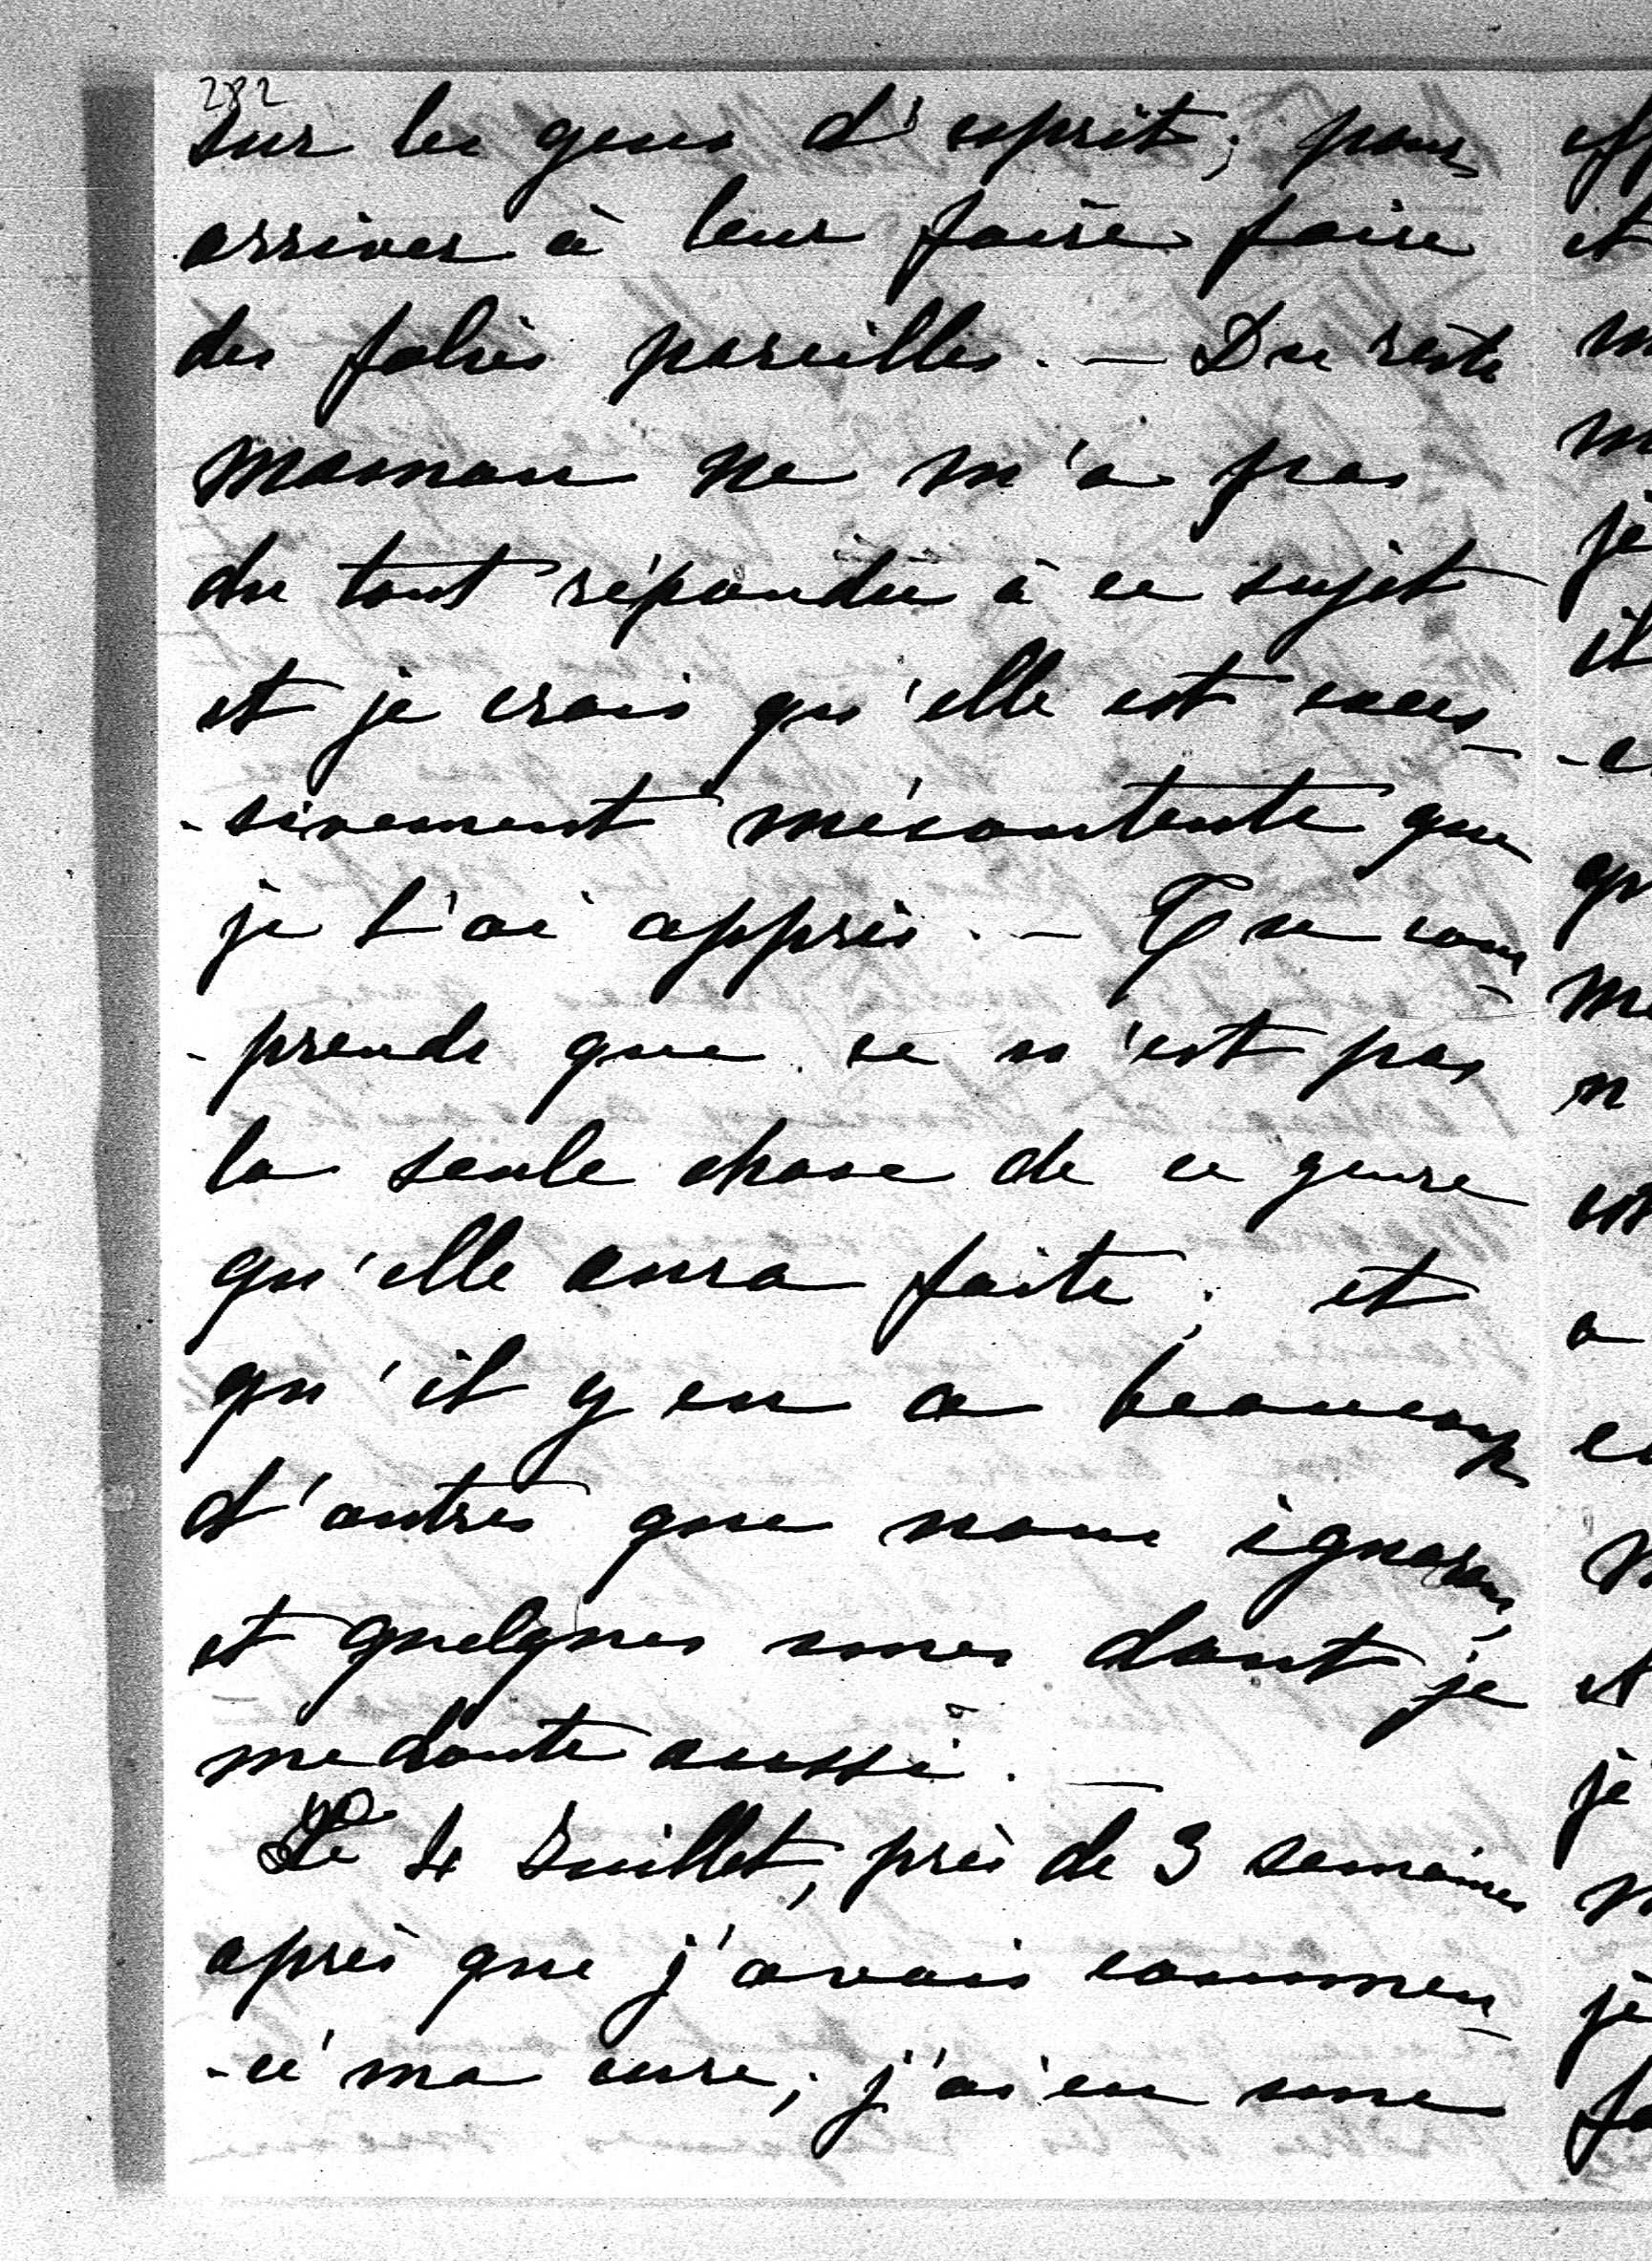 282
sur les gens d'esprit; pour
arriver à leur faire faire
des folies pareilles. — Du reste
maman ne m'a pas
du tout répondu à ce sujet
et je crois qu'elle est exces-
-sivement mécontente que
je l'ai appris. — Tu com-
-prends que ce n'est pas
la seule chose de ce genre
qu'elle aura faite; et
qu'il y en a beaucoup
d'autres que nous ignorons,
et quelques unes dont je
me doute aussi. —
Le 4 Juillet, près de 3 semaines
après que j'avais commen-
-cé ma cure; j'ai eu une